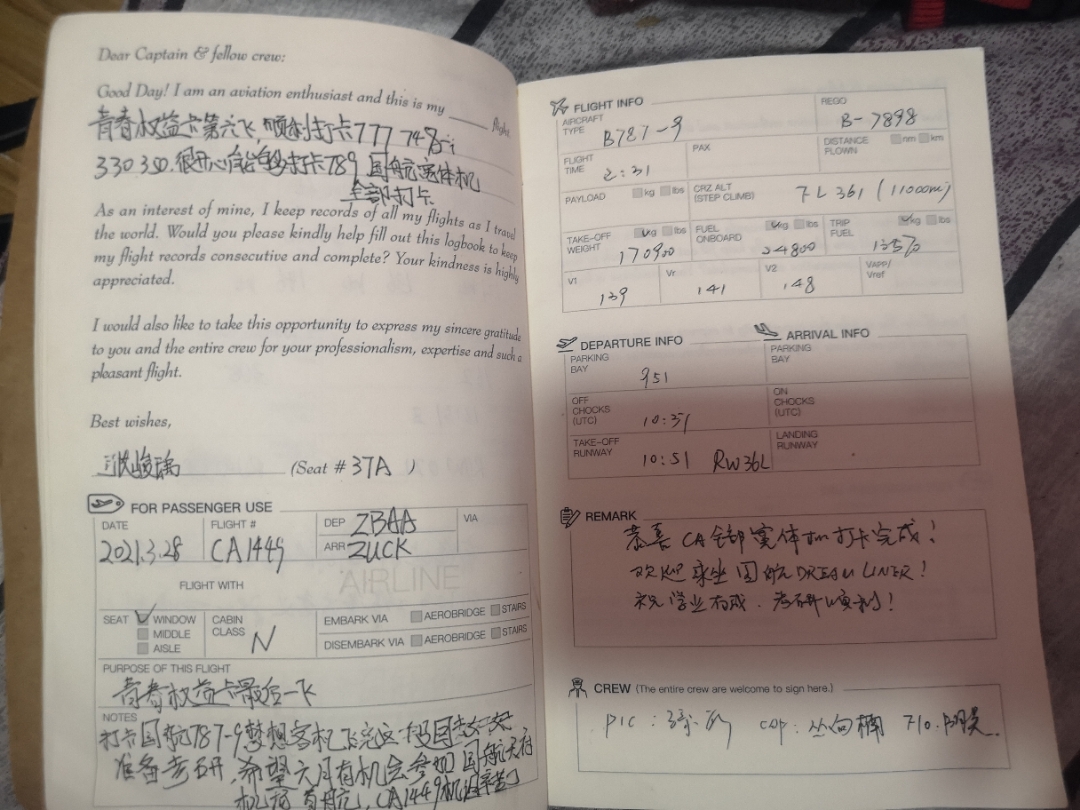 Dear Captain & fellow crew:
Good Day! I am an aviation enthusiast and this is my ____ flight.
青春权益卡第六飞,顺利打卡777 748i
330 350.很开心能够打卡789 国航宽体机
全部打卡
As an interest of mine, I keep records of all my flights as I travel
the world. Would you please kindly help fill out this logbook to keep
my flight records consecutive and complete? Your kindness is highly
appreciated.
I would also like to take this opportunity to express my sincere gratitude
to you and the entire crew for your professionalism, expertise and such a
pleasant flight.
Best wishes,
(Seat # 37A )
FOR PASSENGER USE
DATE 2021.3.28
FLIGHT # CA1449
DEP ZBAA
ARR ZUCK
VIA
FLIGHT WITH
AIRLINE
SEAT WINDOW
MIDDLE
AISLE
CABIN CLASS N
EMBARK VIA AEROBRIDGE STAIRS
DISEMBARK VIA AEROBRIDGE STAIRS
PURPOSE OF THIS FLIGHT
青春权益卡最后一飞
NOTES
打卡国航787-9梦想客机飞完这
准备考研,希望六月有机会参加国航天府
CA1449机组辛苦了
FLIGHT INFO
AIRCRAFT TYPE B787-9
REGO B-7898
FLIGHT TIME 2:31
PAX
DISTANCE FLOWN nm km
PAYLOAD kg lbs
CRZ ALT (STEP CLIMB) FL 361 (11000m)
TAKE-OFF WEIGHT kg lbs 170900
FUEL ONBOARD kg lbs 24800
TRIP FUEL kg lbs
V1 139
Vr 141
V2 148
VAPP/ Vref
DEPARTURE INFO
PARKING BAY 951
OFF CHOCKS (UTC) 10:31
TAKE-OFF RUNWAY 10:51 RW36L
ARRIVAL INFO
PARKING BAY
ON CHOCKS (UTC)
LANDING RUNWAY
REMARK
恭喜CA全部宽体机打卡完成!
欢迎乘坐国航DREAM LINER!
祝学业有成.考研顺利!
CREW (The entire crew are welcome to sign here.)
PIC:
COP: